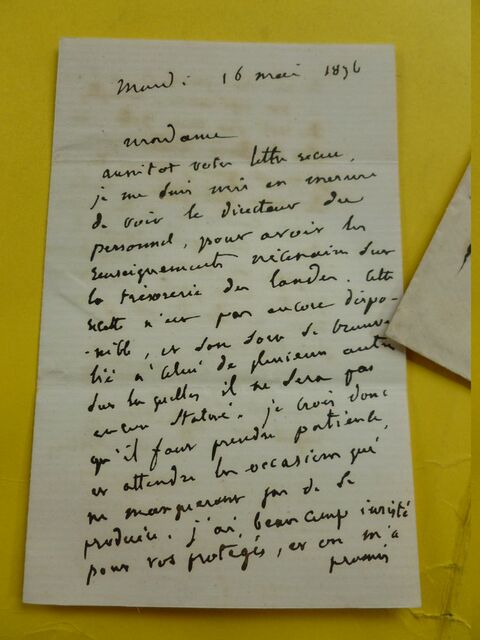 Mardi 16 mai 1876
Madame
aussitot votre lettre recue,
je me suis mis en mesure
de voir le directeur du
personnel, pour avoir les
renseignements nécessaires sur
la trésorerie des Landes. Cette
recette n'est pas encore dispo-
-nible, et son sort se trouve
lié à celui de plusieurs autres
sur lesquelles il ne sera pas
encore statué. je crois donc
qu'il faut prendre patience,
et attendre les occasions qui
ne manqueront pas de se
produire. j'ai beaucoup insisté
pour vos protégés, et on m'a
promis